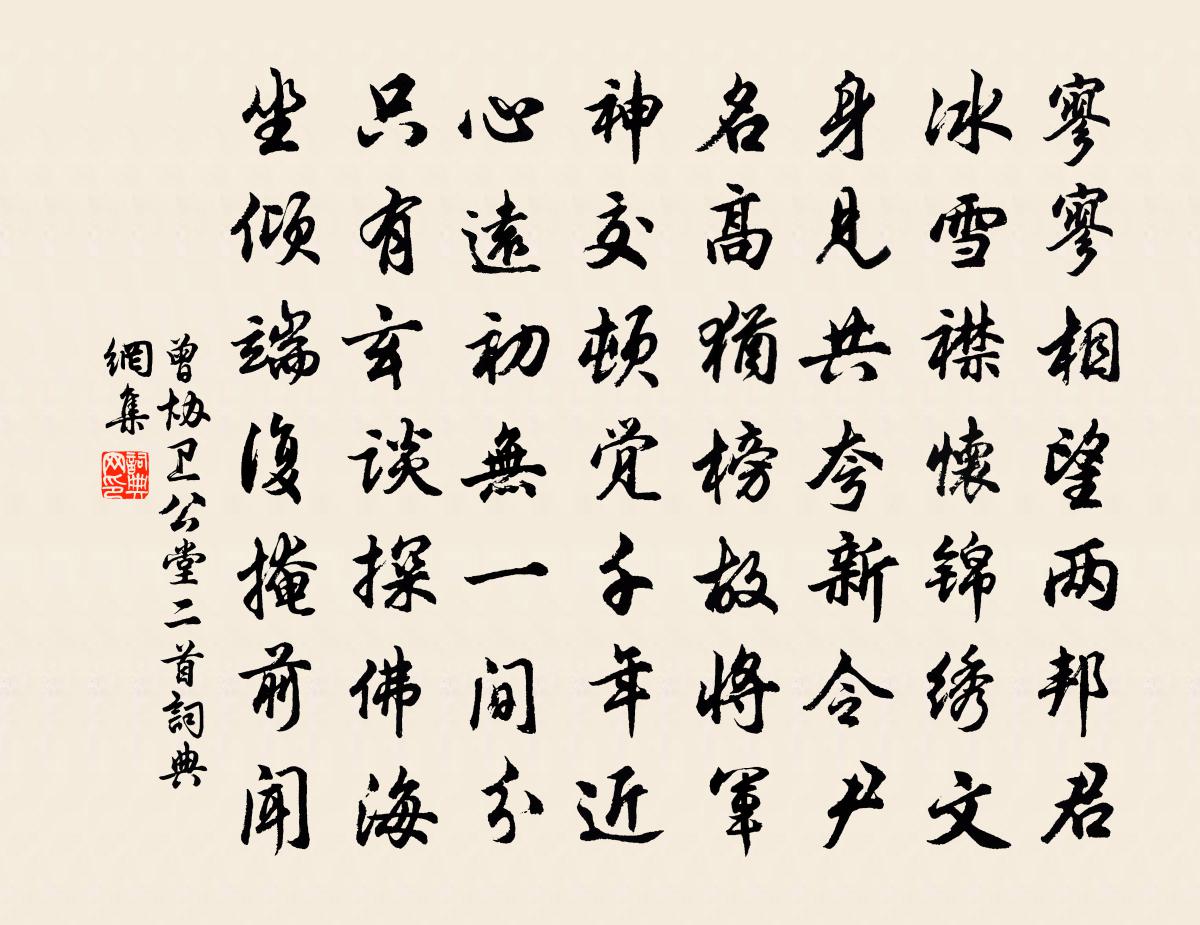 寥寥相望两邦君
冰雪襟懷锦绣文
身見共夸新令尹
名高猶榜故將軍
神交顿觉千年近
心遠初無一间分
只有玄谈探佛海
坐倾端復掩前闻
曾协卫公堂二首詞典
網集
詞典
网印